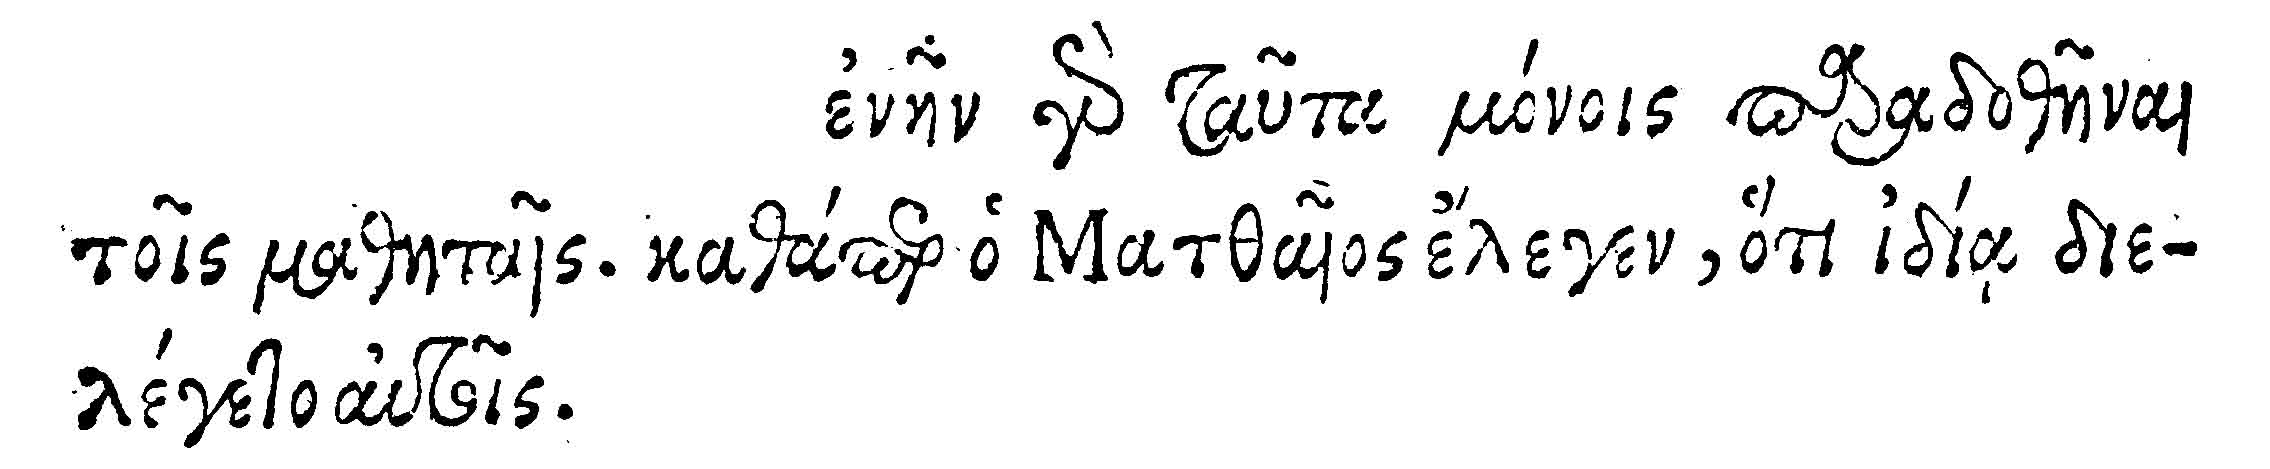 ἐνῆν γὰρ ταῦτα μόνοις παραδοθῆναι
τοῖς μαθηταῖς. καθάπερ ὁ Ματθαῖος ἔλεγεν, ὅτι ἰδίᾳ διε-
λέγετο αὐτοῖς.